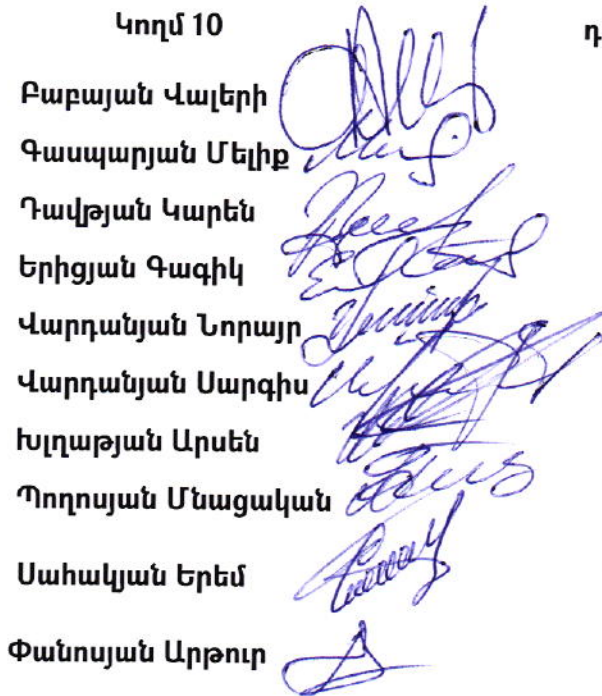 Կողմ 10
դ
Բաբայան Վալերի
Գասպարյան Մելիք
Դավթյան Կարեն
Երիցյան Գագիկ
Վարդանյան Նորայր
Վարդանյան Սարգիս
Խլղաթյան Արսեն
Պողոսյան Մնացական
Սահակյան Երեմ
Փանոսյան Արթուր